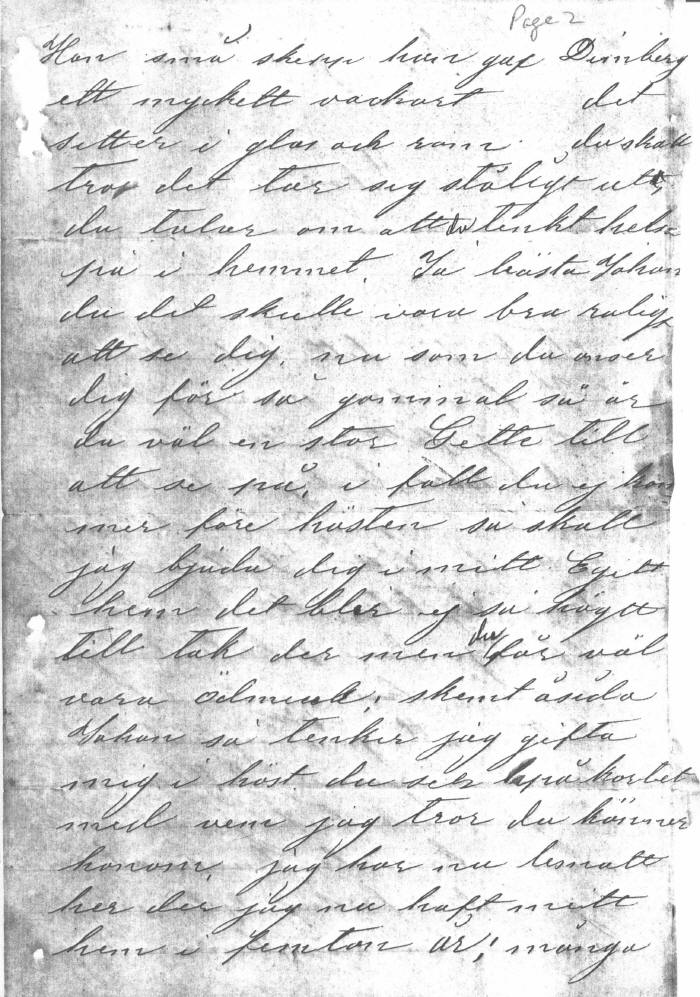 Page 2
Han små skepp han gaf Dernberg
ett myckett vackert det
sitter i glas och ram du skall
tro det tar sig ståligt ut,
du talar om att du tenkt hels
på i hemmet. Ja bästa Johan
du det skulle vara bra roligt
att se dig, nu som du anser
dig för så gammal så är
du väl en stor Gette till
att se på, i fall du ej kom
mer före hösten så skall
jag bjuda dig i mitt Egett
hem det blir ej så högtt
till tak der men du får väl
vara ödmiuk; skemt åsido
Johan så tenker jag gifta
mig i höst du ser på kortet
med vem jag tror du känner
honom, jag har nu lemnatt
her der jag nu haft mitt
hem i femton år, många